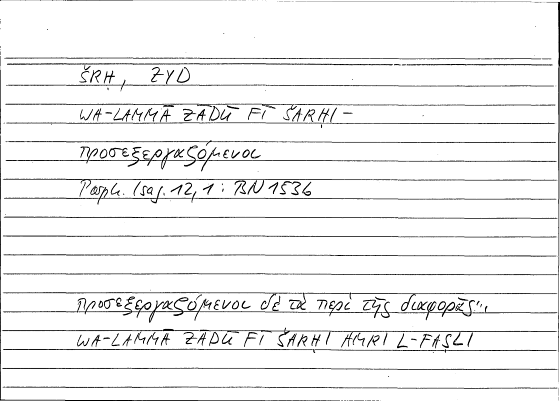 ŠRḤ, ZYD
WA-LAMMĀ ZĀDŪ FĪ ŠARḤI –
προσεξεργαζόμενοι
Porph. Isag. 12,1 : BN 1536
προσεξεργαζόμενοι δὲ τὰ περὶ τῆς διαφορᾶς...
WA-LAMMĀ ZĀDŪ FĪ ŠARḤI AMRI L-FAṢLI